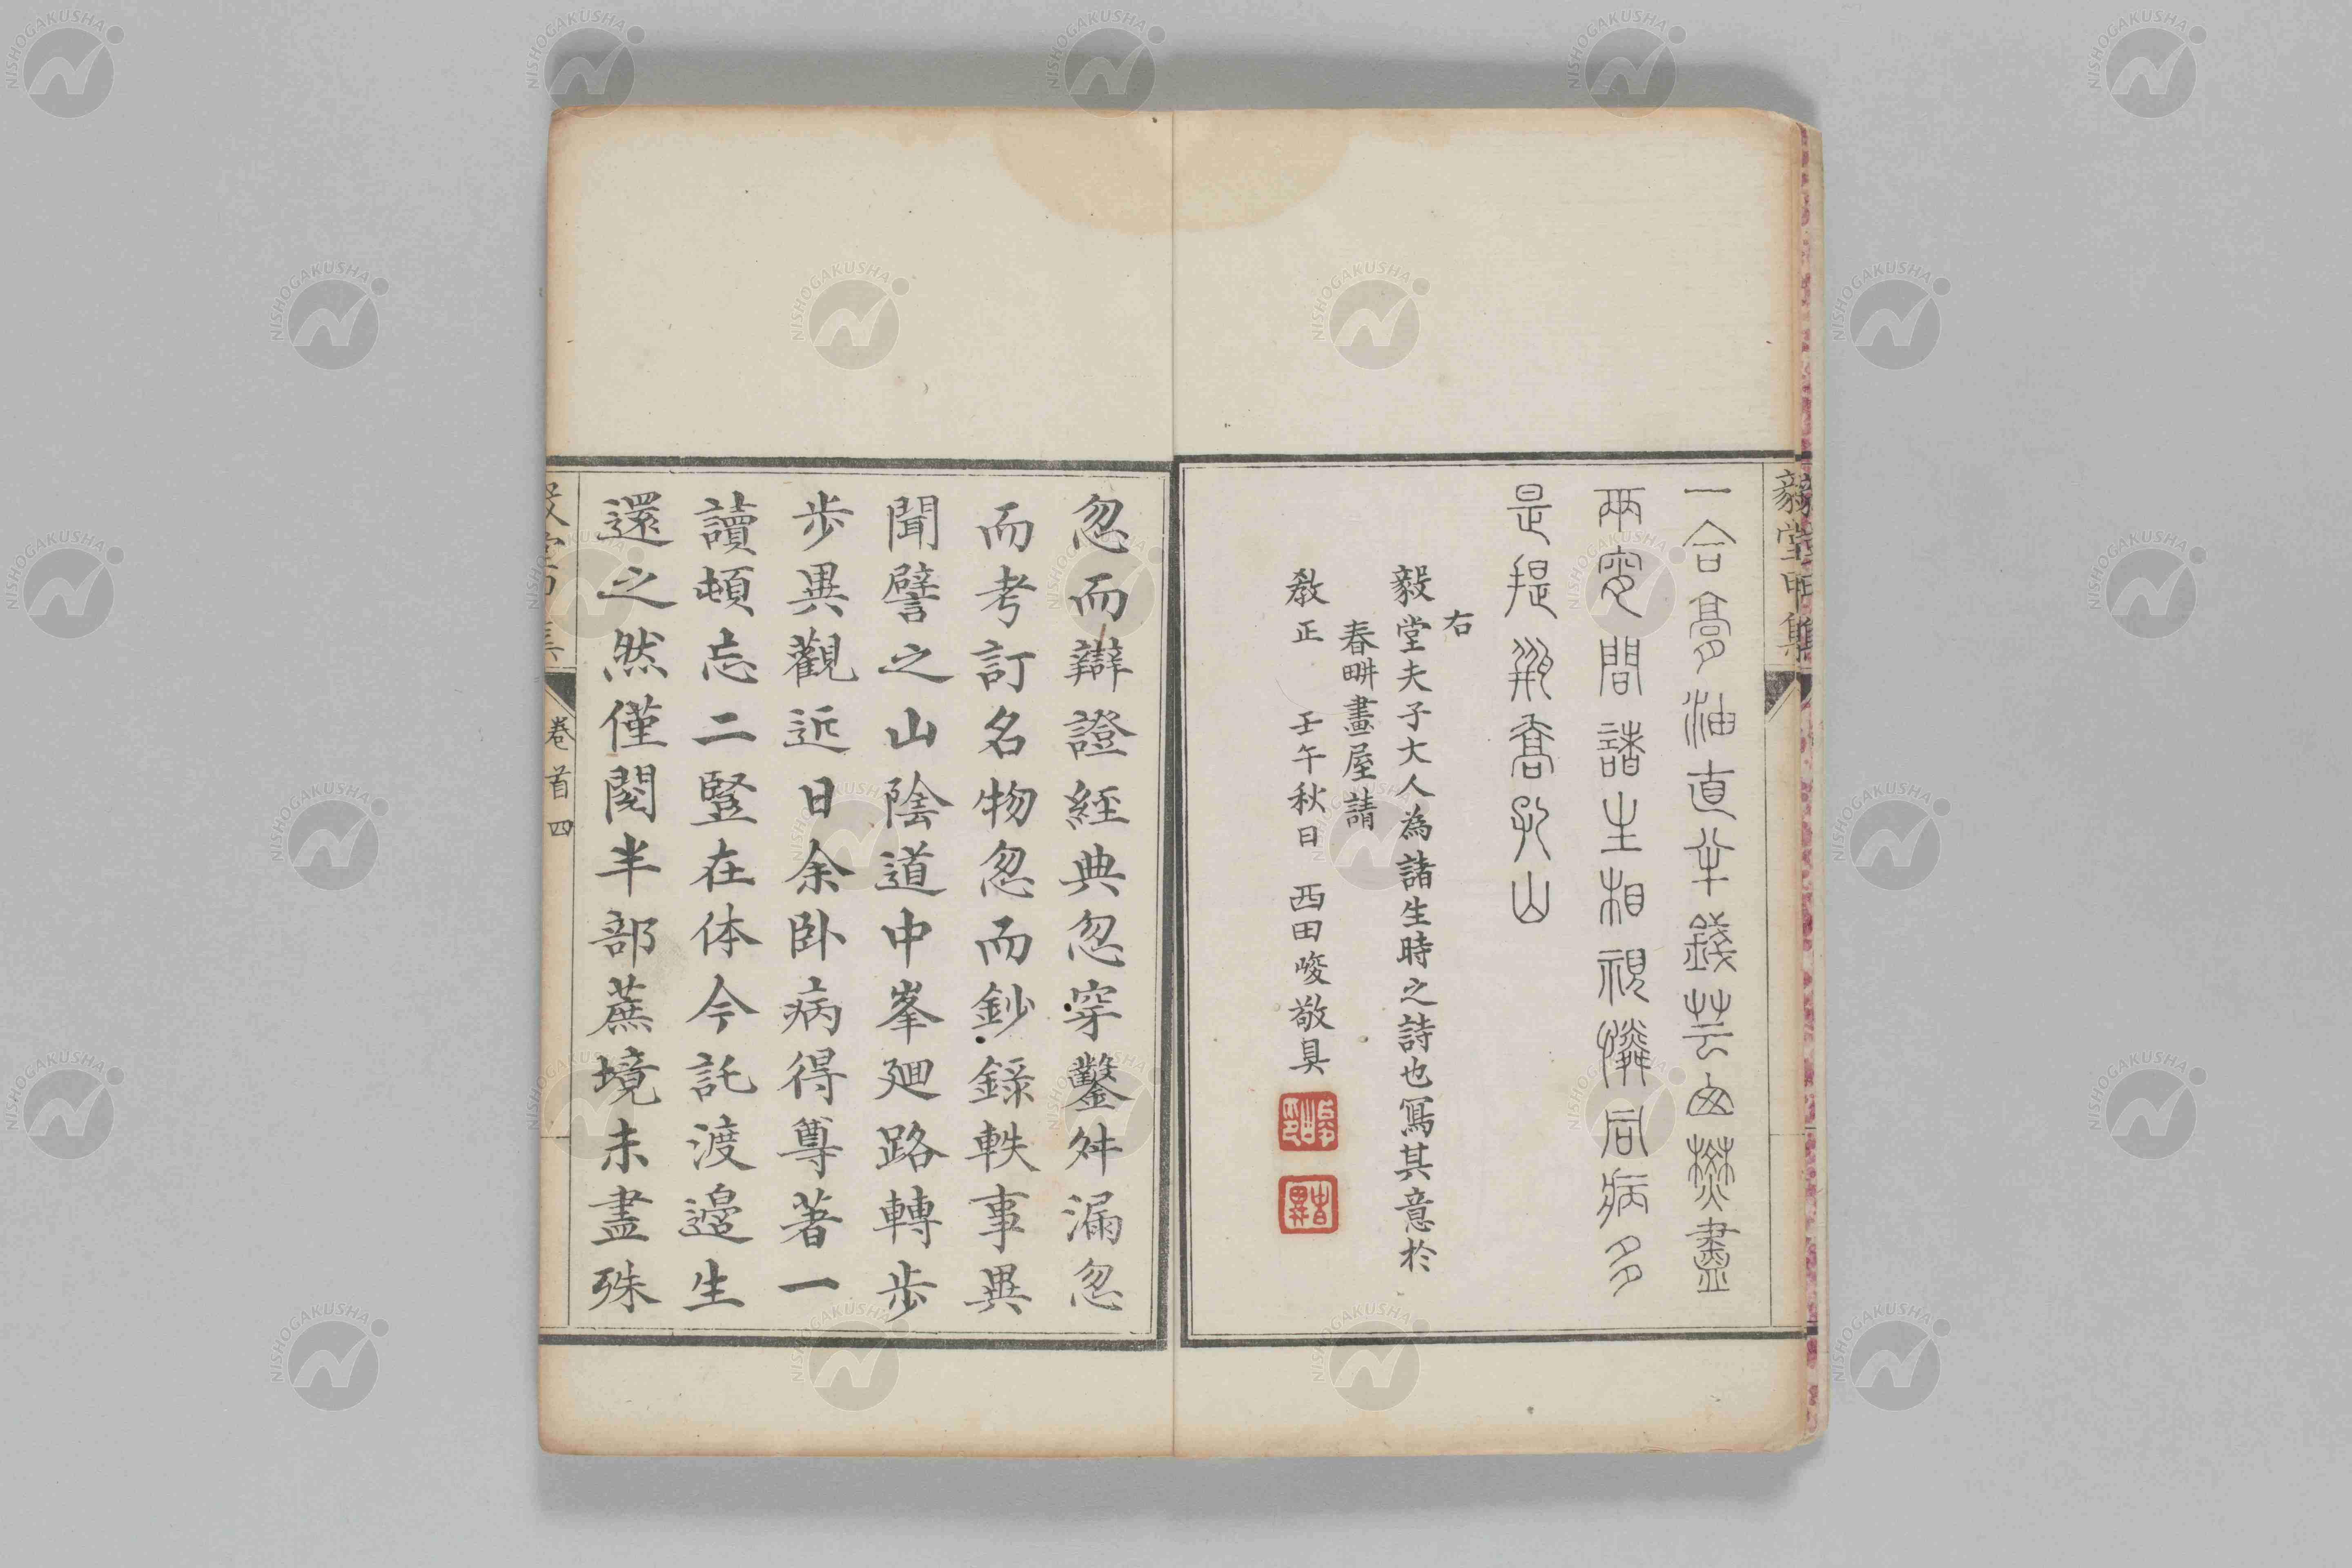 毅堂丙集
一合膏油直半錢芸窗焚盡
兩更間諸生相視憐同病多
是提瓶喬孔山
右
毅堂夫子大人為諸生時之詩也寫其意於
春畊畫屋請
敎正 壬午秋日 西田峻敬具
忽而辯證經典忽穿鑿舛漏忽
而考訂名物忽而鈔錄軼事異
聞譬之山陰道中峯廻路轉歩
歩異觀近日余卧病得尊著一
讀頓忘二豎在体今託渡邉生
還之然僅閱半部蔗境未盡殊
卷首 四